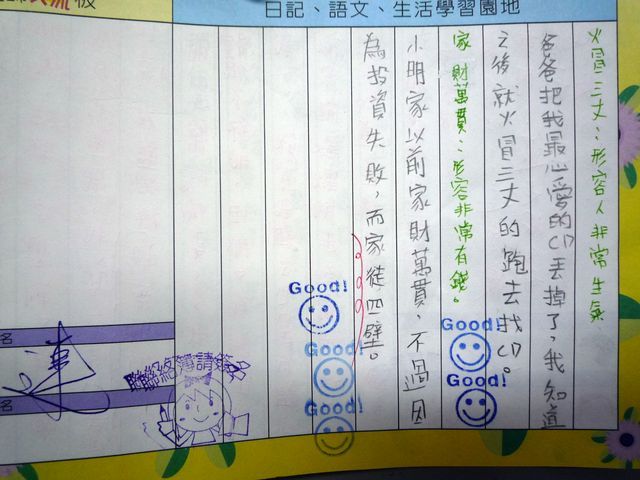 日記、語文、生活學習園地
流板
火冒三丈：形容人非常生氣
爸爸把我最心愛的CD丟掉了，我知道
之後就火冒三丈的跑去找CD。
家財萬貫：形容非常有錢。
小明家以前家財萬貫，不過因
為投資失敗，而家徒四壁。
Good!
Good!
Good!
Good!
Good!
聯絡簿請簽名
名
名